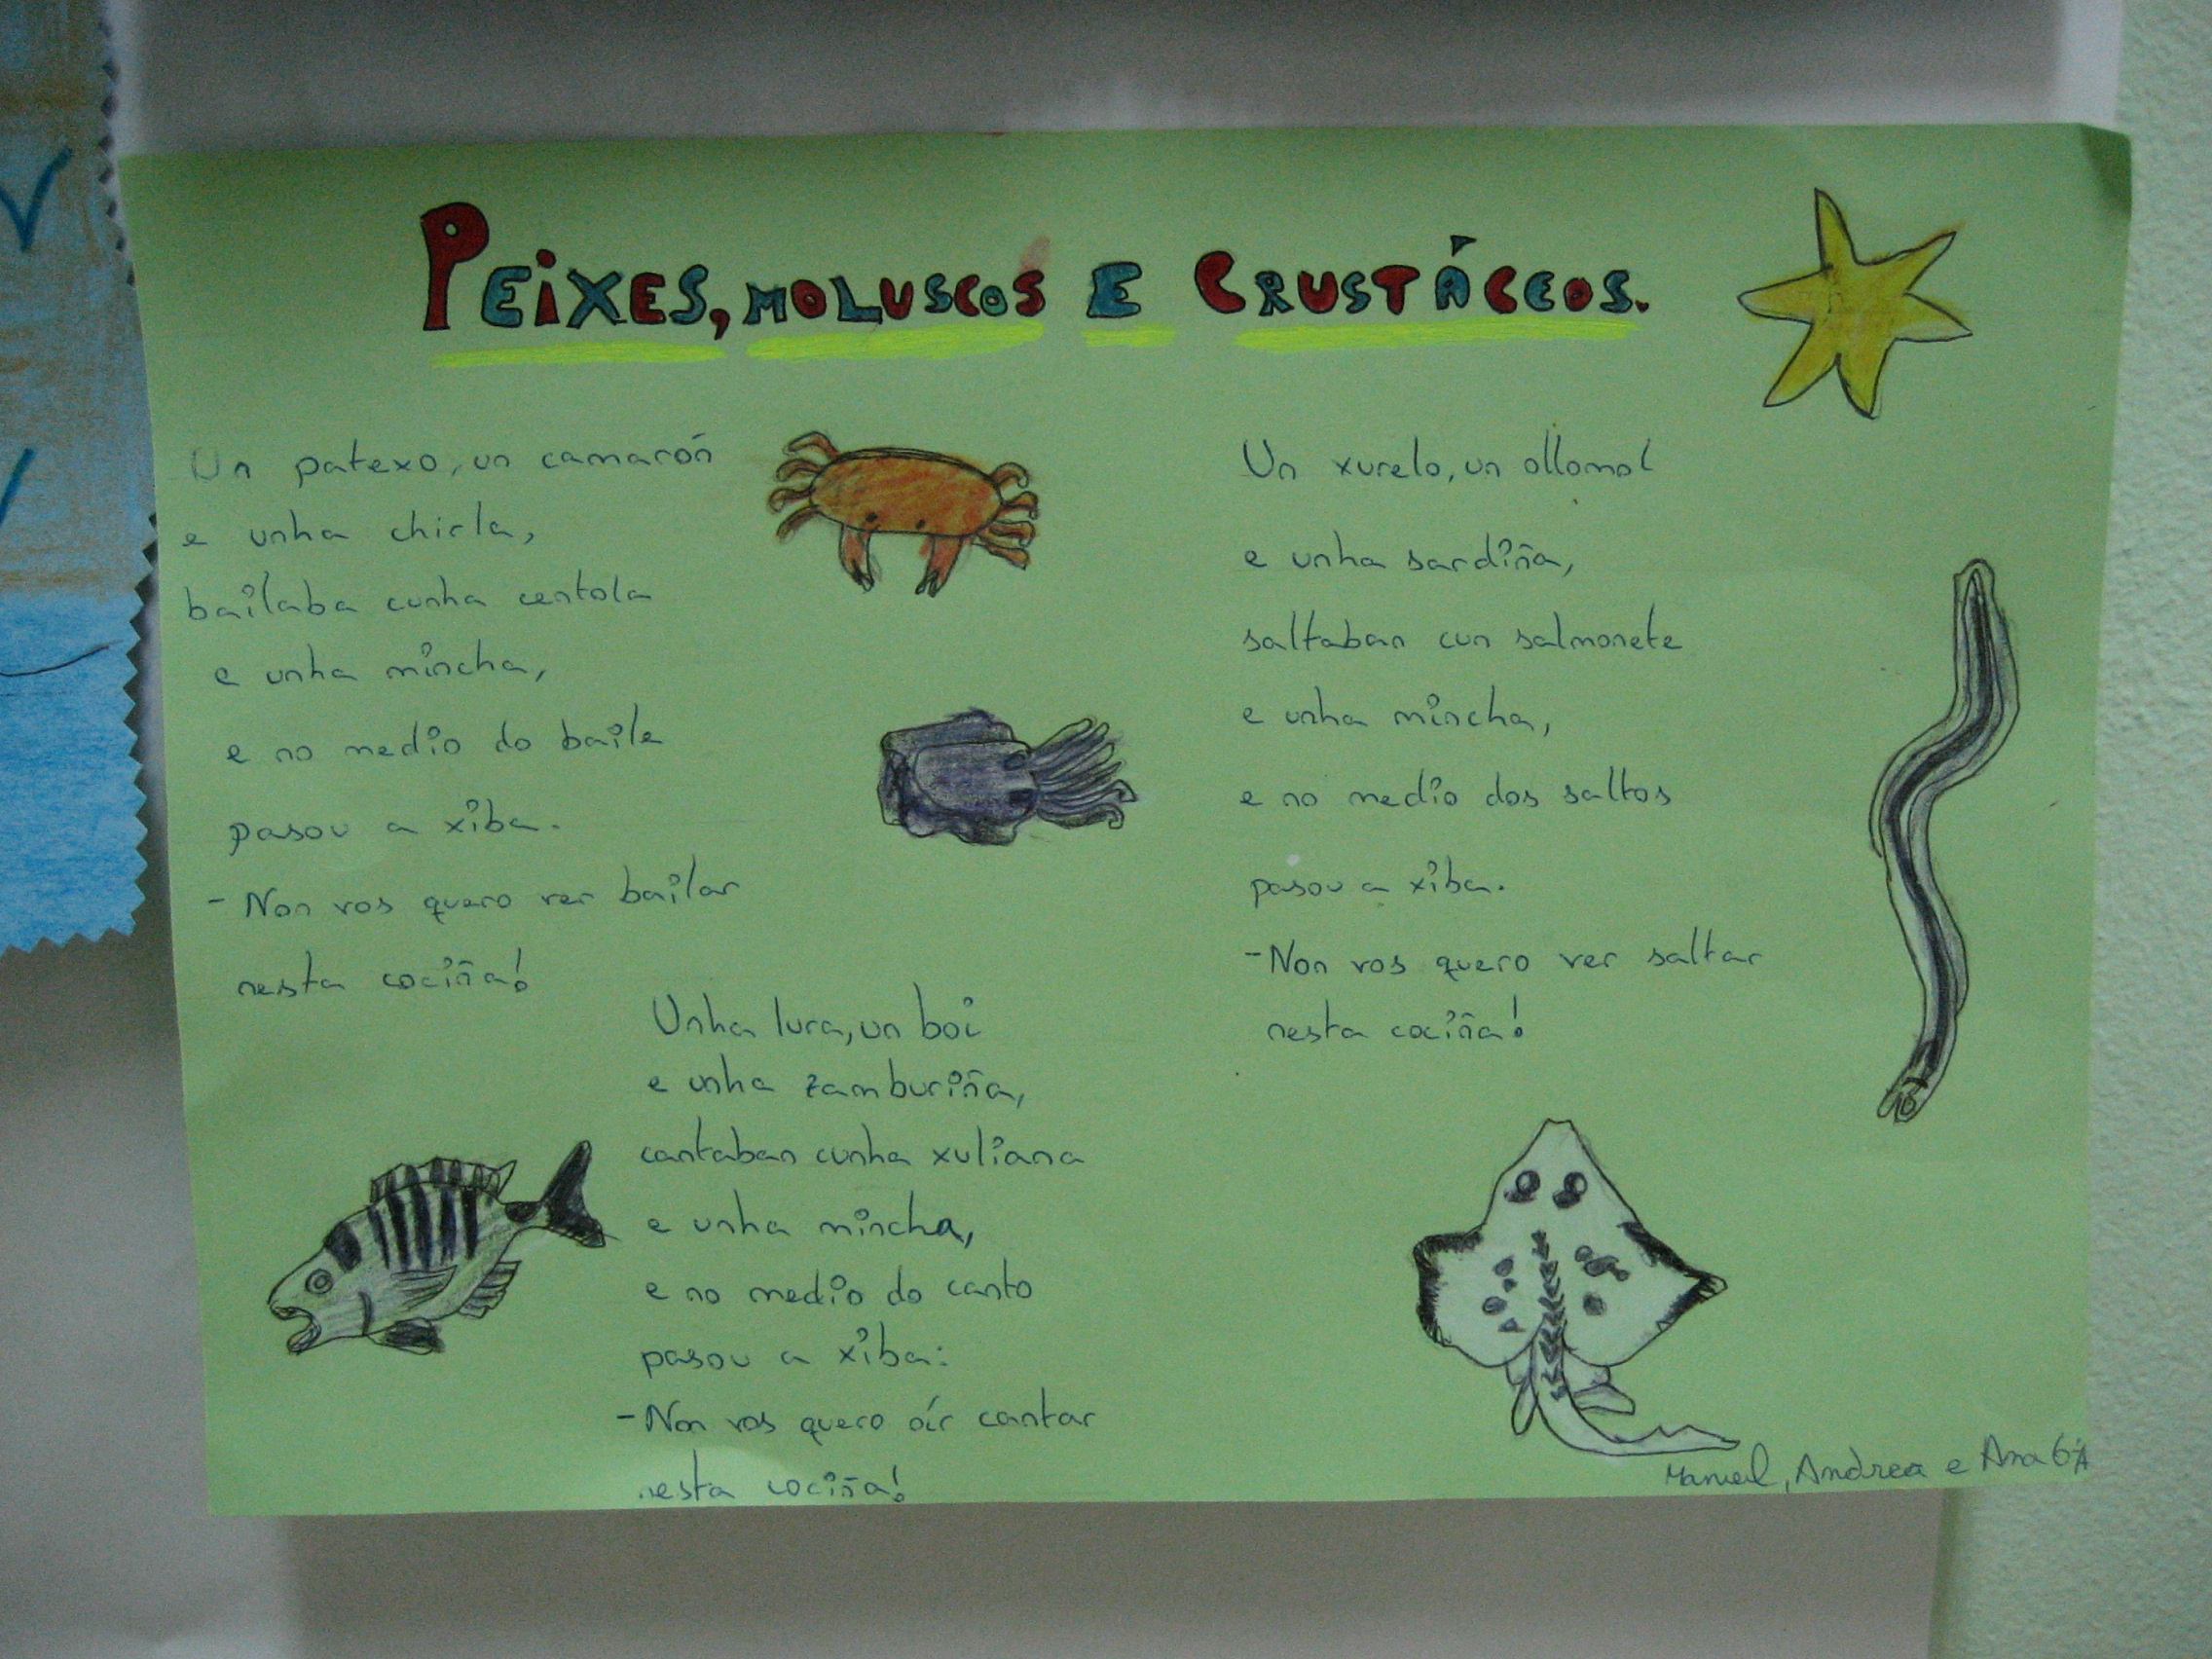 PEIXES, MOLUSCOS E CRUSTÁCEOS.
Un patexo, un camarón
e unha chirla,
bailaba cunha centola
e unha mincha,
e no medio do baile
pasou a xiba.
- Non vos quero ver bailar
nesta cociña!
Unha lura, un boi
e unha zamburiña,
cantaban cunha xuliana
e unha mincha,
e no medio do canto
pasou a xiba:
- Non vos quero oír cantar
nesta cociña!
Un xurelo, un ollomol
e unha sardiña,
saltaban cun salmonete
e unha mincha,
e no medio dos saltos
pasou a xiba.
- Non vos quero ver saltar
nesta cociña!
Manuel, Andrea e Ana 6ºA